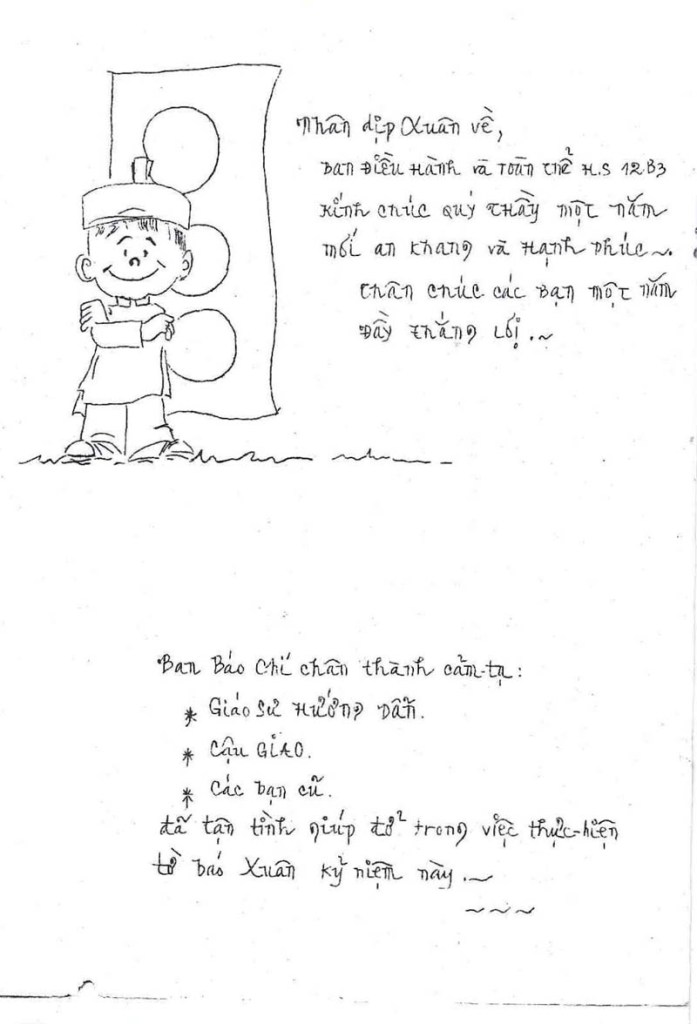 Nhân dịp Xuân về,
Ban Điều Hành và Toàn Thể H.S 12B3
Kính chúc quý Thầy một năm
mới an khang và Hạnh Phúc~.
Thân chúc các Bạn một năm
Đầy Thắng Lợi.~
Ban Báo Chí chân thành cảm-tạ:
* Giáo Sư Hướng Dẫn.
* Cậu GIAO.
* Các bạn cũ.
đã tận tình giúp đở trong việc thực-hiện
tờ báo Xuân kỷ niệm này.~
~~~